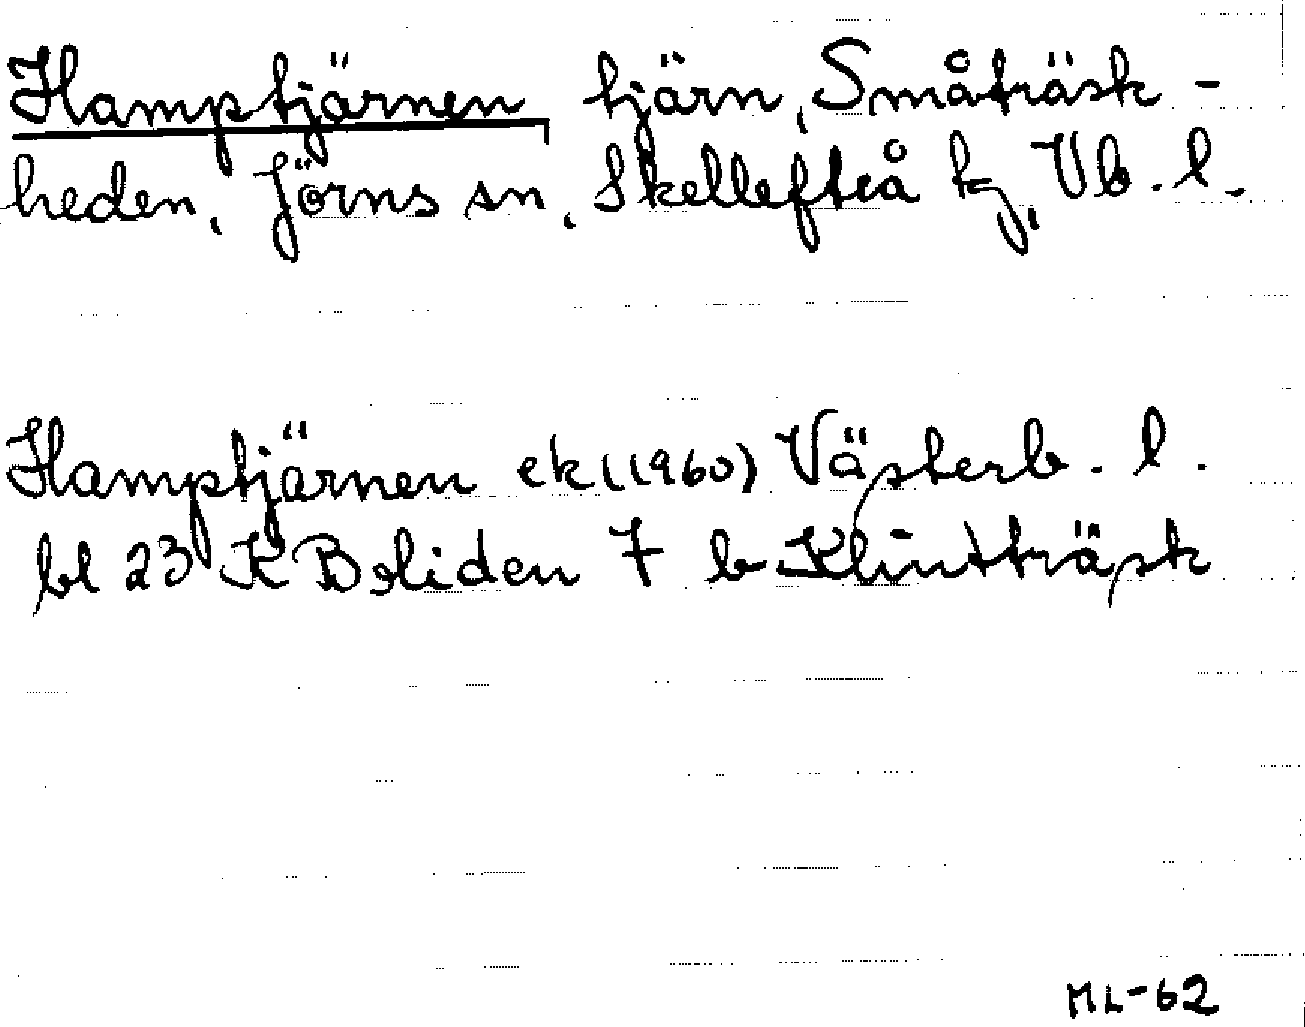 Hamptjärnen tjärn, Småträsk-
heden, Jörns sn, Skellefteå tg, Vb.l.
Hamptjärnen ek (1960) Västerb. l.
bl 23 K Boliden 7 b Klintträsk
ML-62